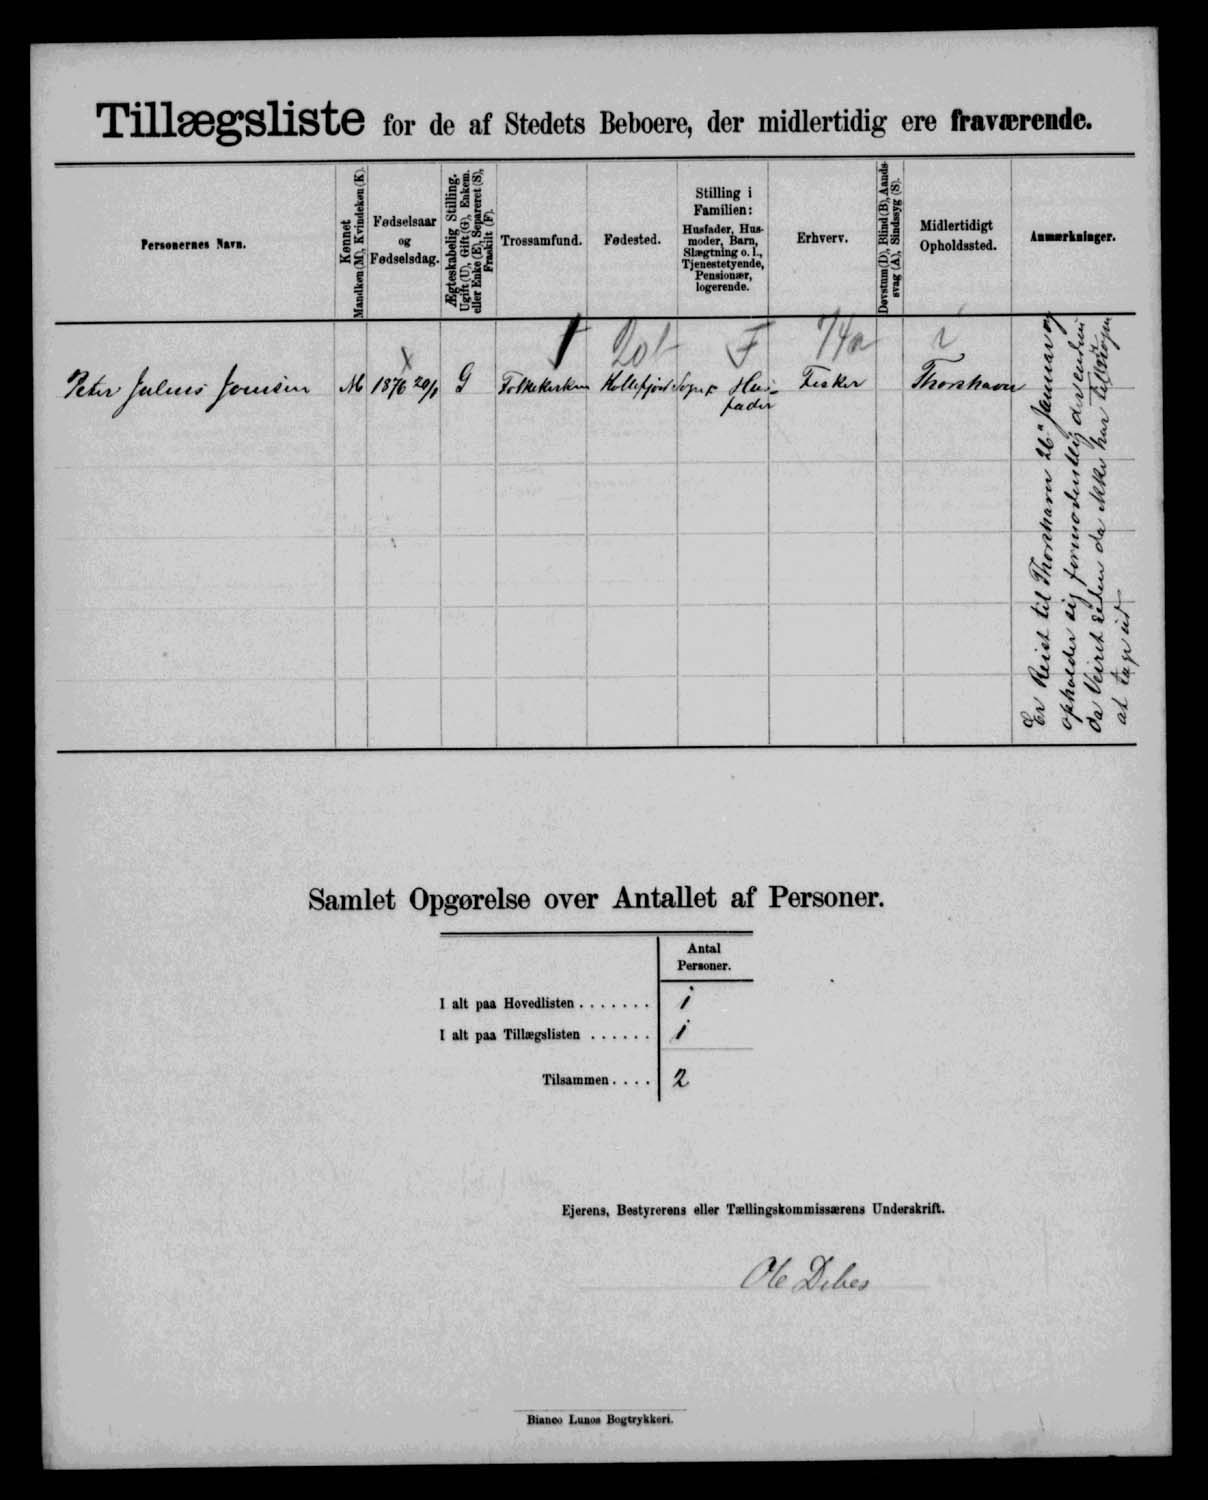 Tillægsliste for de af Stedets Beboere, der midlertidig ere fraværende.
Personernes Navn.
Kønnet
Mandkøn (M), Kvindekøn (K).
Fødselsaar
og
Fødselsdag.
Ægteskabelig Stilling.
Ugift (U), Gift (G), Enkem.
eller Enke (E), Separeret (S),
Fraskilt (F).
Trossamfund.
Fødested.
Stilling i
Familien:
Husfader, Hus-
moder, Barn,
Slægtning o. l.,
Tjenestetyende,
Pensionær,
logerende.
Erhverv.
Døvstum (D), Blind (B), Aands-
svag (A), Sindssyg (S).
Midlertidigt
Opholdssted.
Anmærkninger.
x
F
Peter Julius Joensen M 1876 20/1 G Folkekirken Kollefjord Sogn F Hus-
fader
Fisker
Thorshavn
Er Reist til Thorshavn 26. Januar og
opholder sig formodentlig der endnu
da Veiret siden da ikke har
at tage ud
Samlet Opgørelse over Antallet af Personer.
Antal
Personer.
I alt paa Hovedlisten . . . . . . . 1
I alt paa Tillægslisten . . . . . . 1
Tilsammen . . . . 2
Ejerens, Bestyrerens eller Tællingskommissærens Underskrift.
Ole Debes
Bianco Lunos Bogtrykkeri.